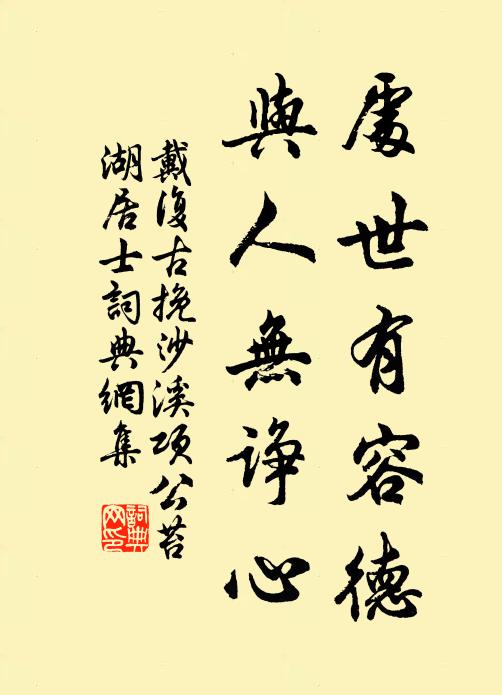 處世有容德
與人無諍心
戴復古挽沙溪項公苔
湖居士詞典網集
詞典
网印